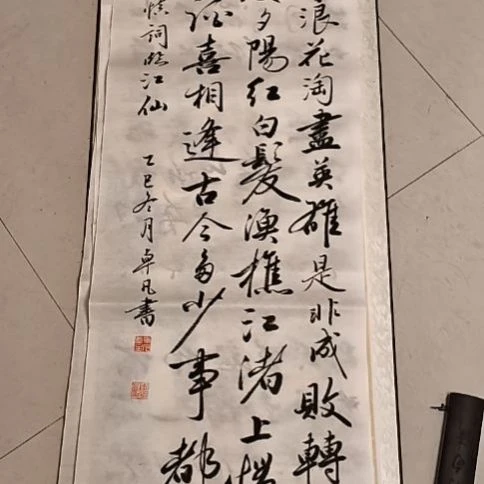 浪花淘盡英雄是非成敗轉
夕陽紅白髮漁樵江渚上慣
喜相逢古今多少事都
慎詞臨江仙
乙巳冬月卓凡書